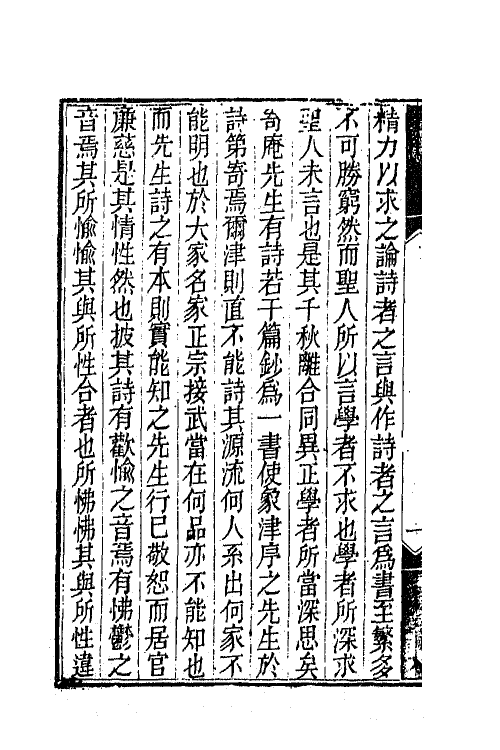 精力以求之論詩者之言與作詩者之言為書至繁多
不可勝窮然而聖人所以言學者不求也學者所深求
聖人未言也是其千秋離合同異正學者所當深思矣
奇庵先生有詩若干篇鈔為一書使象津序之先生於
詩第寄焉爾津則直不能詩其源流何人系出何家不
能明也於大家名家正宗接武當在何品亦不能知也
而先生詩之有本則實能知之先生行已敬恕而居官
廉慈是其情性然也披其詩有歡愉之音焉有怫鬱之
音焉其所愉愉其與所性合者也所怫怫其與所性違
一